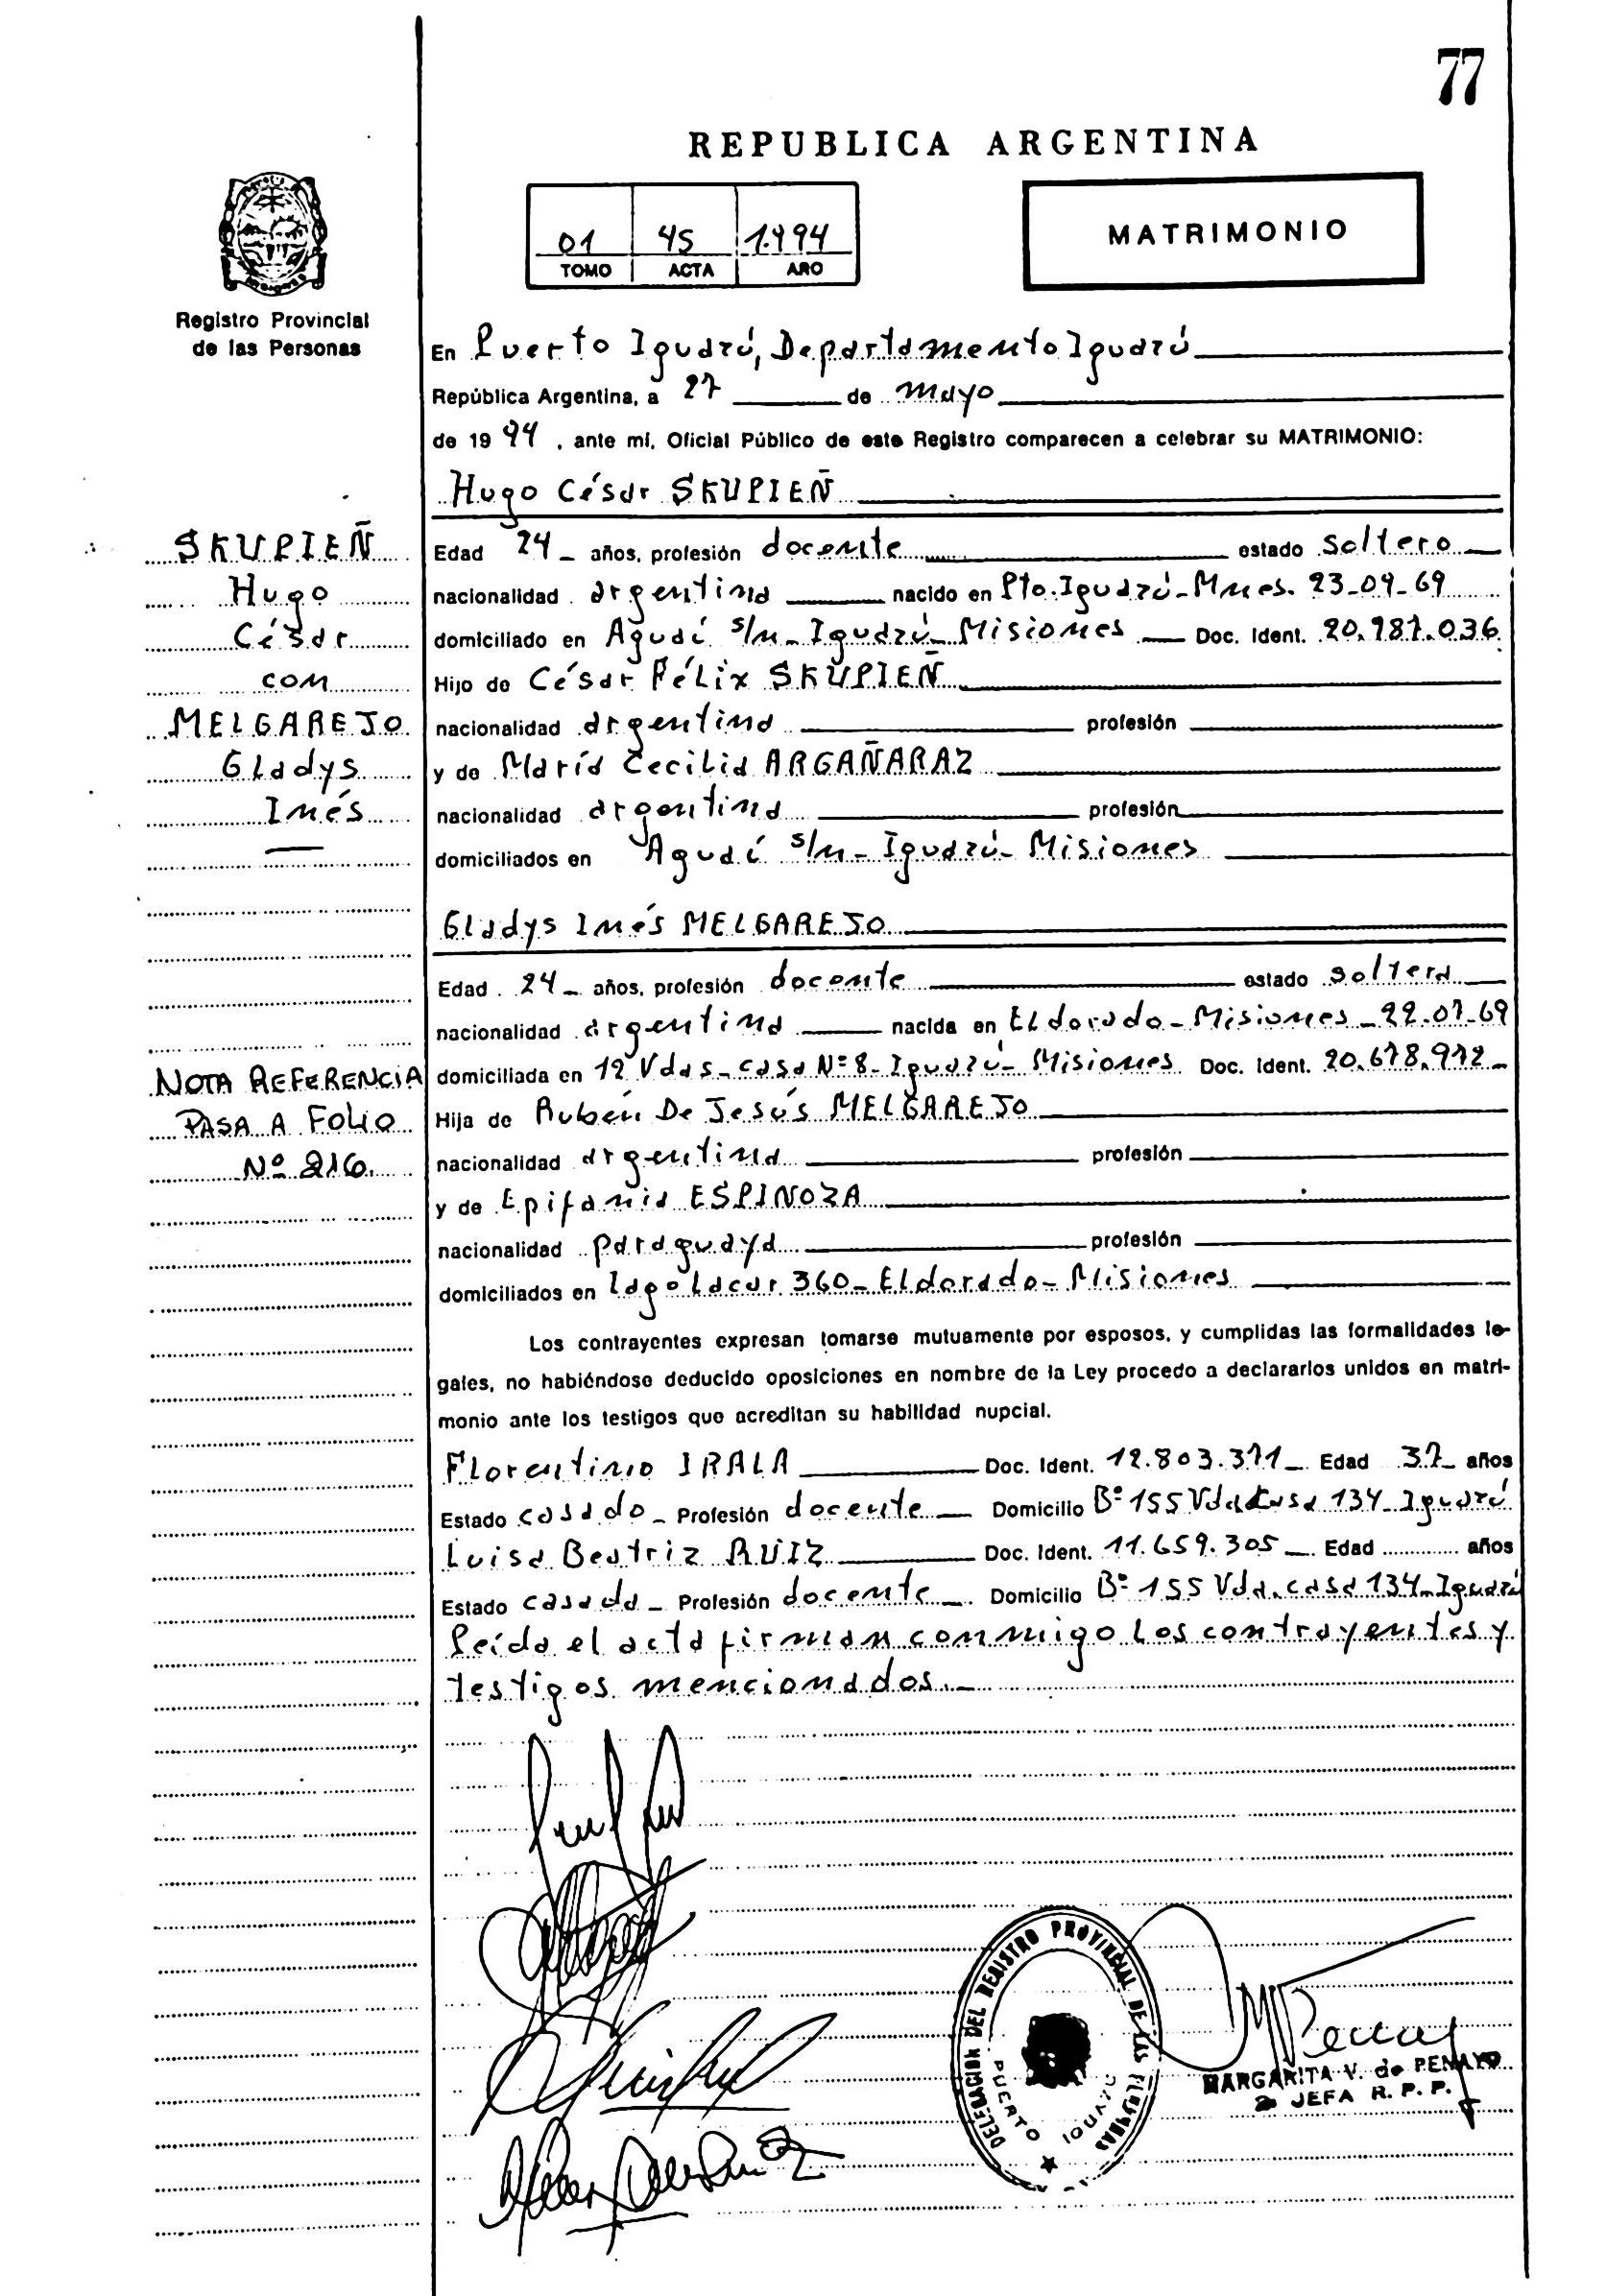 77
REPUBLICA ARGENTINA
01 45 1.994
TOMO ACTA AÑO
MATRIMONIO
Registro Provincial
de las Personas
En Puerto Iguazú, Departamento Iguazú
República Argentina, a 27 de mayo
de 1994, ante mí, Oficial Público de este Registro comparecen a celebrar su MATRIMONIO:
Hugo César SKUPIEÑ
SKUPIEÑ
Hugo
César
con
MELGAREJO
Gladys
Inés
NOTA REFERENCIA
PASA A FOLIO
Nº 216.
Edad 24 años, profesión docente estado soltero
nacionalidad argentina nacido en Pto. Iguazú - Mnes. 23-09-69
domiciliado en Aguaí s/n - Iguazú - Misiones Doc. Ident. 20.981.036
Hijo de César Félix SKUPIEÑ
nacionalidad argentina profesión
y de María Cecilia ARGAÑARAZ
nacionalidad argentina profesión
domiciliados en Aguaí s/n - Iguazú - Misiones
Gladys Inés MELGAREJO
Edad 24 años, profesión docente estado soltera
nacionalidad argentina nacida en Eldorado - Misiones - 22-07-69
domiciliada en 12 Vdas - casa Nº 8 - Iguazú - Misiones Doc. Ident. 20.618.912
Hija de Rubén De Jesús MELGAREJO
nacionalidad argentina profesión
y de Epifania ESPINOZA
nacionalidad paraguaya profesión
domiciliados en lago Lacar 360 - Eldorado - Misiones
Los contrayentes expresan tomarse mutuamente por esposos, y cumplidas las formalidades le-
gales, no habiéndose deducido oposiciones en nombre de la Ley procedo a declararlos unidos en matri-
monio ante los testigos que acreditan su habilidad nupcial.
Florentino IRALA Doc. Ident. 12.803.371 Edad 37 años
Estado casado - Profesión docente Domicilio Bº 155 Vda Casa 134 - Iguazú
Luisa Beatriz RUIZ Doc. Ident. 11.659.305 Edad años
Estado casada - Profesión docente Domicilio Bº 155 Vda. casa 134 - Iguazú
Leída el acta firman conmigo los contrayentes y
testigos mencionados.-
DELEGACION DEL REGISTRO PROVINCIAL DE LAS PERSONAS
PUERTO IGUAZU
MARGARITA V. de PENAYO
JEFA R. P. P.